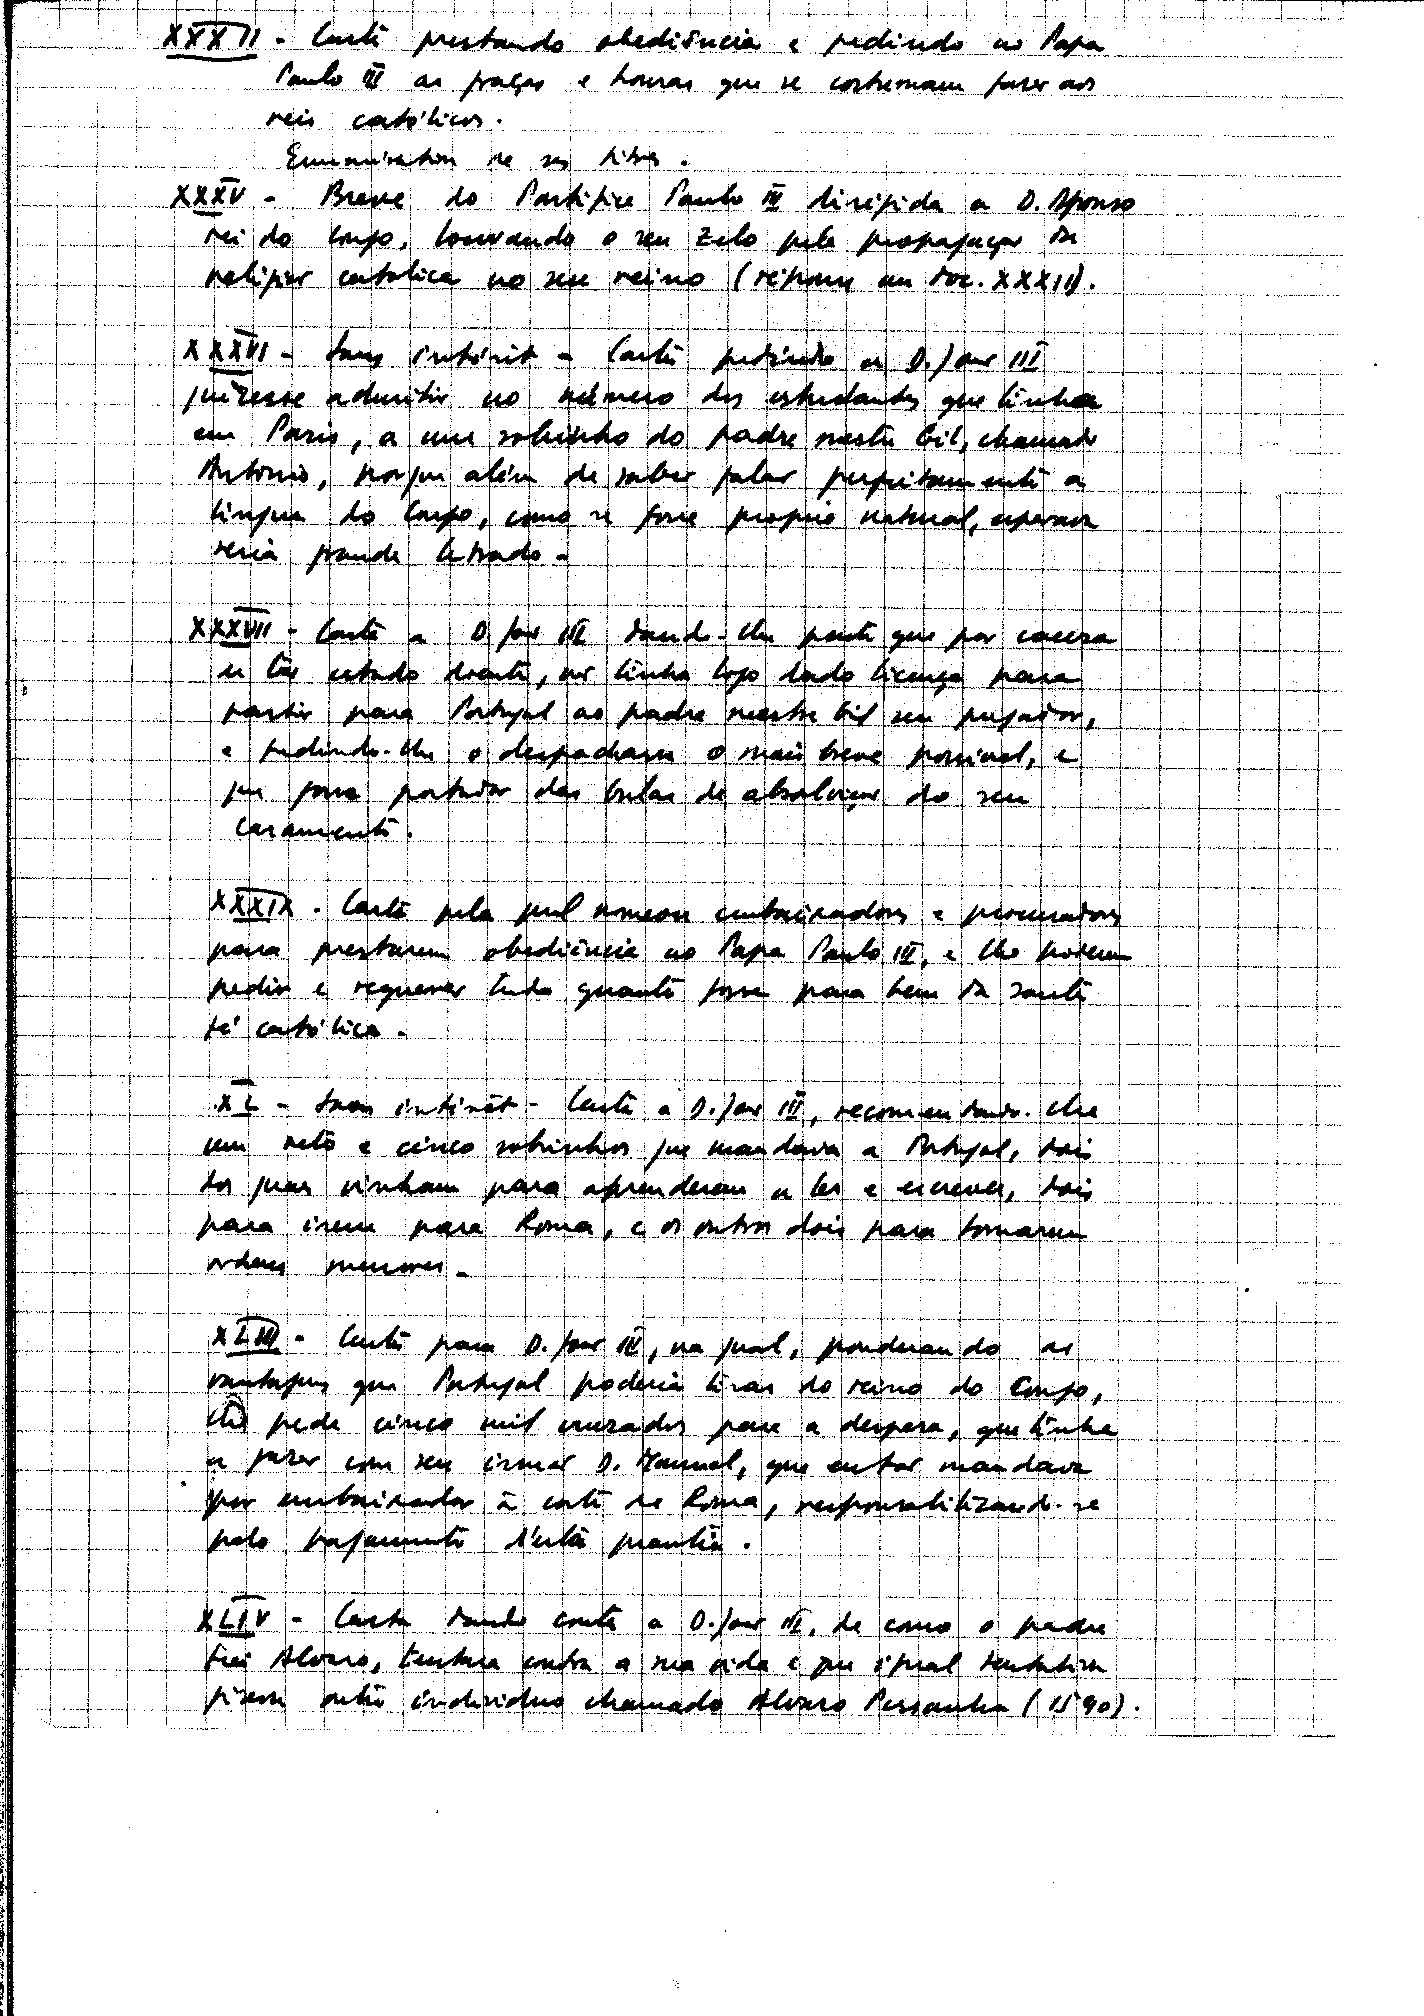 XXXII - Carta prestando obediência e pedindo ao Papa
Paulo III as graças e honras que se costumam fazer aos
reis católicos.
Enumération de ses titres.
XXXV - Breve do Pontífice Paulo III dirigida a D. Afonso
rei do Congo, louvando o seu zelo pela propagação da
religião catolica no seu reino (réponse au doc. XXXII).
XXXVI - Sans intérêt - Carta pedindo a D. João III
quizesse admitir no número dos estudantes que tinha
em Paris, a um sobrinho do padre mestre Gil, chamado
António, porque além de saber falar perfeitamente a
lingua do Congo, como se fosse proprio natural, esperava
seria grande letrado -
XXXVII - Carta a D. João III dando-lhe parte que por causa
de ter estado doente, não tinha logo dado licença para
partir para Portugal ao padre mestre Gil seu pregador,
e pedindo-lhe o despachasse o mais breve possivel, e
que fosse portador das bulas de absolvição do seu
casamento.
XXXIX - Carta pela qual nomeou embaixadores e procuradores
para prestarem obediência ao Papa Paulo III, e lhe poderem
pedir e requerer tudo quanto fosse para bem da santa
fé católica -
XL - Sans intérêt - Carta a D. João III, recomendando-lhe
um neto e cinco sobrinhos que mandava a Portugal, dois
dos quais vinham para aprenderem a ler e escrever, dois
para irem para Roma, e os outros dois para tomarem
ordens menores -
XLIII - Carta para D. João III, na qual, ponderando as
vantagens que Portugal poderia tirar do reino do Congo,
lhe pede cinco mil cruzados para a despesa, que tinha
a fazer com seu irmão D. Manuel, que então mandava
por embaixador à corte de Roma, responsabilizando-se
pelo pagamento d'esta quantia.
XLIV - Carta dando conta a D. João III, de como o padre
frei Alvaro, tentara contra a sua vida e que igual tentativa
fizera outro individuo chamado Alvaro Pessanha (1540).